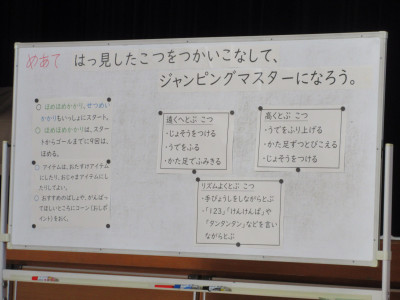 めあて はっ見したこつをつかいこなして、
ジャンピングマスターになろう。
○ほめほめかかり、せつめい
かかりもいっしょにスタート。
○ほめほめかかりは、スター
トからゴールまでに4回は、
ほめる。
○アイテムは、おたすけアイテム
にしたり、おじゃまアイテムに
したりしてよい。
○おすすめのばしょや、がんばっ
てほしいところにコーン(おしポ
イント)をおく。
遠くへとぶ こつ
・じょそうをつける
・うでをふる
・かた足でふみきる
高くとぶ こつ
・うでをふり上げる
・かた足ずつとびこえる
・じょそうをつける
リズムよくとぶ こつ
・手びょうしをしながらとぶ
・「123」「けんけんぱ」や
「タンタンタン」などを言い
ながらとぶ